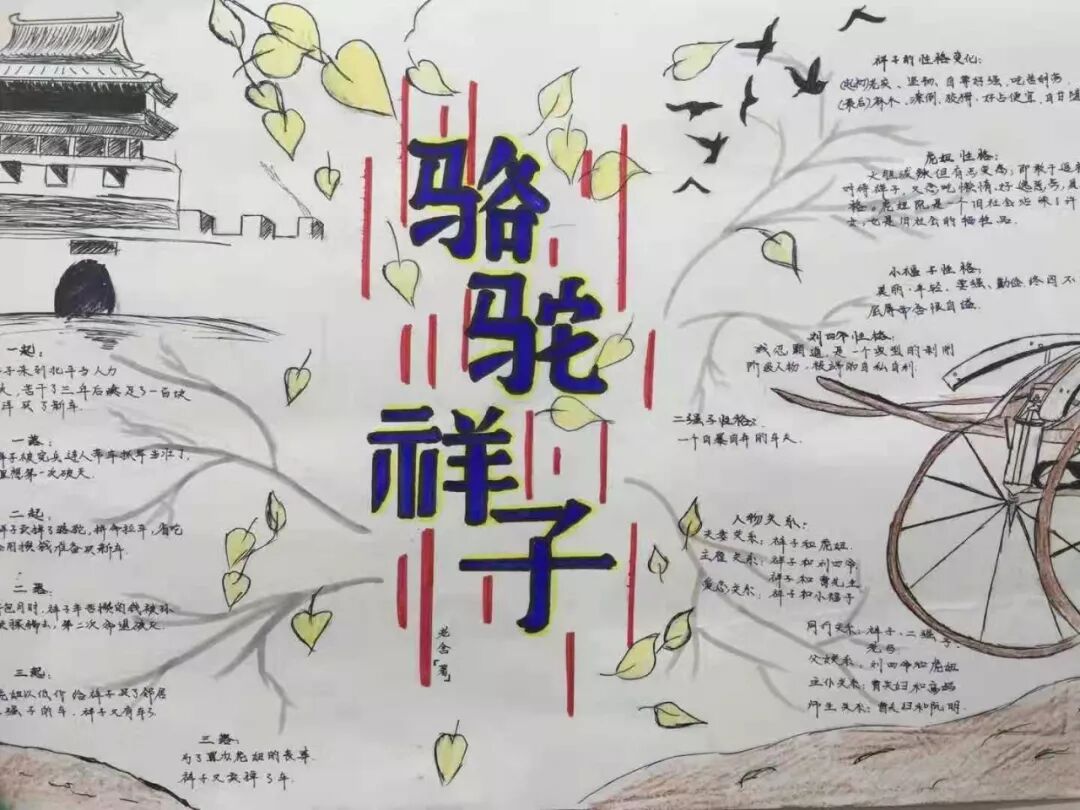 骆驼祥子
老舍「著」
一起：
子来到北平当人力
，苦干了三年后凑足了一百块
买了新车.
一落：
祥子被宪兵进人带车抓车当壮丁.
理想第一次破灭.
二起：
祥子卖掉了骆驼，拼命拉车，省吃
用换钱准备买新车.
二落：
包月时，祥子辛苦攒的钱被孙
侦探骗去，第二次希望破灭.
三起：
虎妞以低价给祥子买了邻居
二强子的车.祥子又有车了
三落：
为了置办虎妞的丧事.
祥子又卖掉了车.
祥子的性格变化：
(起初)老实、坚韧、自尊好强、吃苦耐劳.
(最后)麻木、潦倒、狡猾、好占便宜、自甘堕
虎妞性格：
大胆泼辣但有点变态；即敢于追
对待祥子，又恋吃懒情好逸恶劳，是
格，虎妞既是一个旧社会
也是旧社会的牺牲品.
小福子性格：
美丽、年轻、要强、勤俭终因不
屈辱命含恨自缢.
刘四爷性格：
残忍霸道是一个典型的剥削
阶级人物，极端的自私自利.
二强子性格：
一个自暴自弃的车夫.
人物关系：
夫妻关系：祥子和虎妞.
主雇关系：祥子和刘四爷
祥子和曹先生
爱恋关系：祥子和小福子
同行关系：祥子、二强子
老马
父女关系：刘四爷和虎妞
主仆关系：曹夫妇和高妈
师生关系：曹夫妇和阮明.